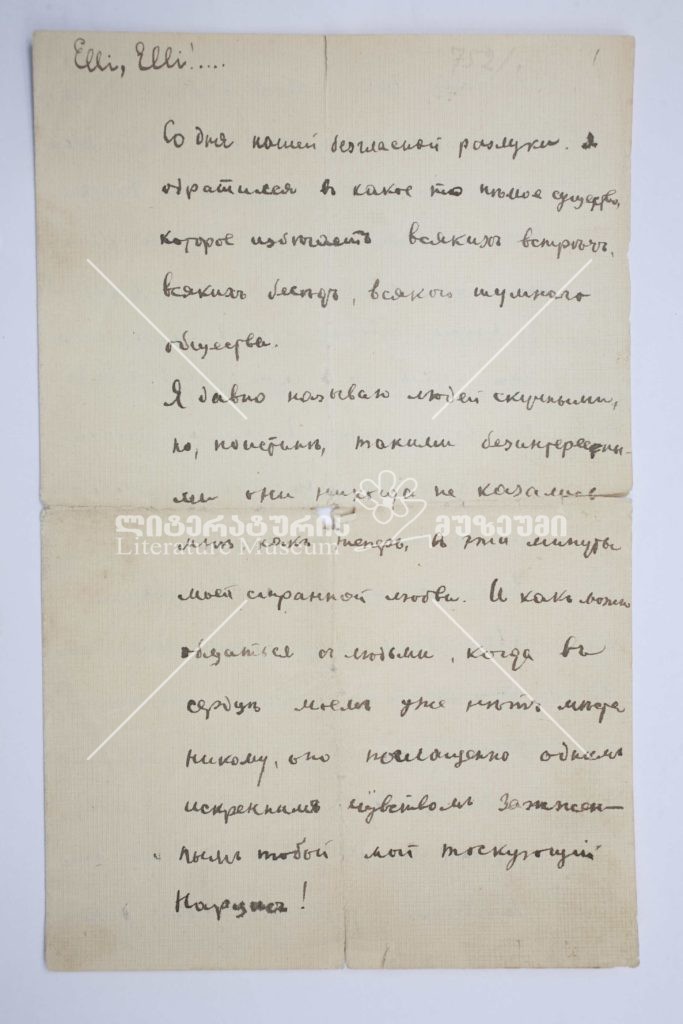 Elli, Elli!....
752/. 1
Со дня нашей безгласной разлуки. Я
обратился в какое то нѣмое существо,
которое избѣгаетъ всякихъ встрѣчъ,
всякихъ бесѣдъ, всякого шумного
общества.
Я давно называю людей скучными,
но, поистинѣ, такими безинтересны-
ми они никогда не казались
мнѣ какъ теперь, в эти минуты
моей странной любви. И какъ можно
общаться съ людьми, когда въ
сердцѣ моемъ уже нѣтъ мѣста
никому, оно поглащенно однимъ
искреннимъ чувствомъ зажжен-
нымъ тобой мой тоскующій
Нарцисъ!
ლიტერატურის მუზეუმი
Literature Museum